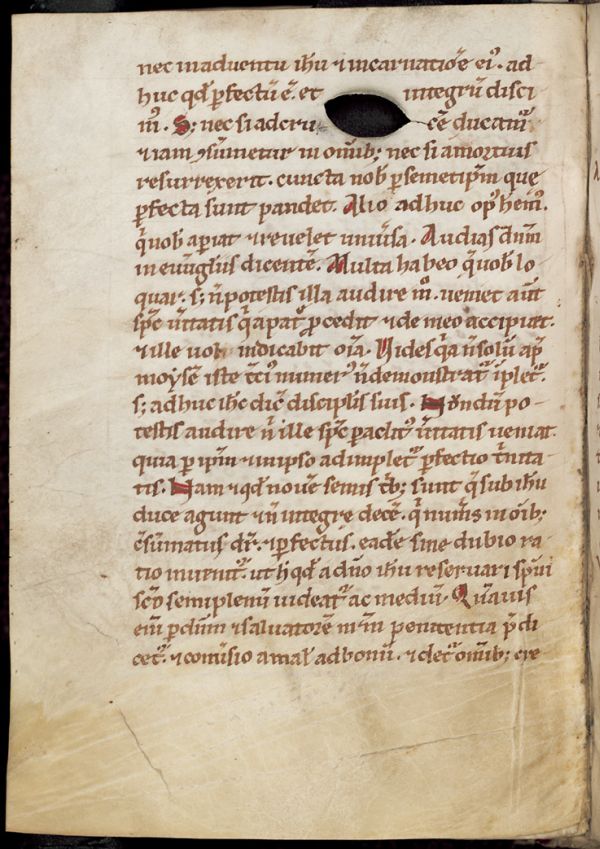 nec in aduentu ih̄u ⁊ incarnatiōe ei᷒. ad
huc qđ ꝑfectū ē. et integrū disci
m᷒. S; nec si ad cru cē ducat᷑
⁊ iam ꝯsūmetur in om̄ib; nec si a mortuis
resurrexerit. cuncta nob̄ ꝑ semetip̄m quę
ꝑfecta sunt pandet. Alio adhuc op᷒ hem᷒.
q̄ nob̄ aꝑiat ⁊ reuelet uniu̓sa. Audias dn̄m
in euu̅gl̄iis dicentē. Multa habeo q̄ uob̄ lo
quar. s; n̄ potestis illa audire m̊. ueniet aut̄
sp̄c ūitatis q̄ a pat̓ ꝓcedit ⁊ de meo accipiat.
⁊ ille uob̄ indicabit om̄a. Vides q̄a n̄ solū ap̄
moysē iste t̓ci᷒ numer᷒ n̄ demonstrat᷑ īplet᷑.
s; adhuc ih̄c dic̄ discipl̄is suis. Nōndū po
testis audire n̄ ille sp̄c paclit᷒ ūitatis ueniat.
quia ꝑ ip̄m ⁊ in ipso adimplet᷑ ꝑfectio t̓nita
tis. Nam ⁊ qđ nouē semis t̓b; sunt q̄ sub ih̄u
duce agunt ⁊ n̄ integre decē. q̄ num̓s in oīb;
ꝯsumatus dr̄. ⁊ ꝑfectus. eadē sine dubio ra
tio inuenit᷑. ut h̄ qđ a dn̄o ih̄u reseruari sp̄ui
sc̄o semiplenū uideat᷑ ac mediū. Quāuis
eīn ꝑ dn̄m ⁊ saluatorē nr̄m penitentia p̄di
cet᷑. ⁊ conu̓sio a mal̄ ad bonū. ⁊ det᷑ om̄ib; cre